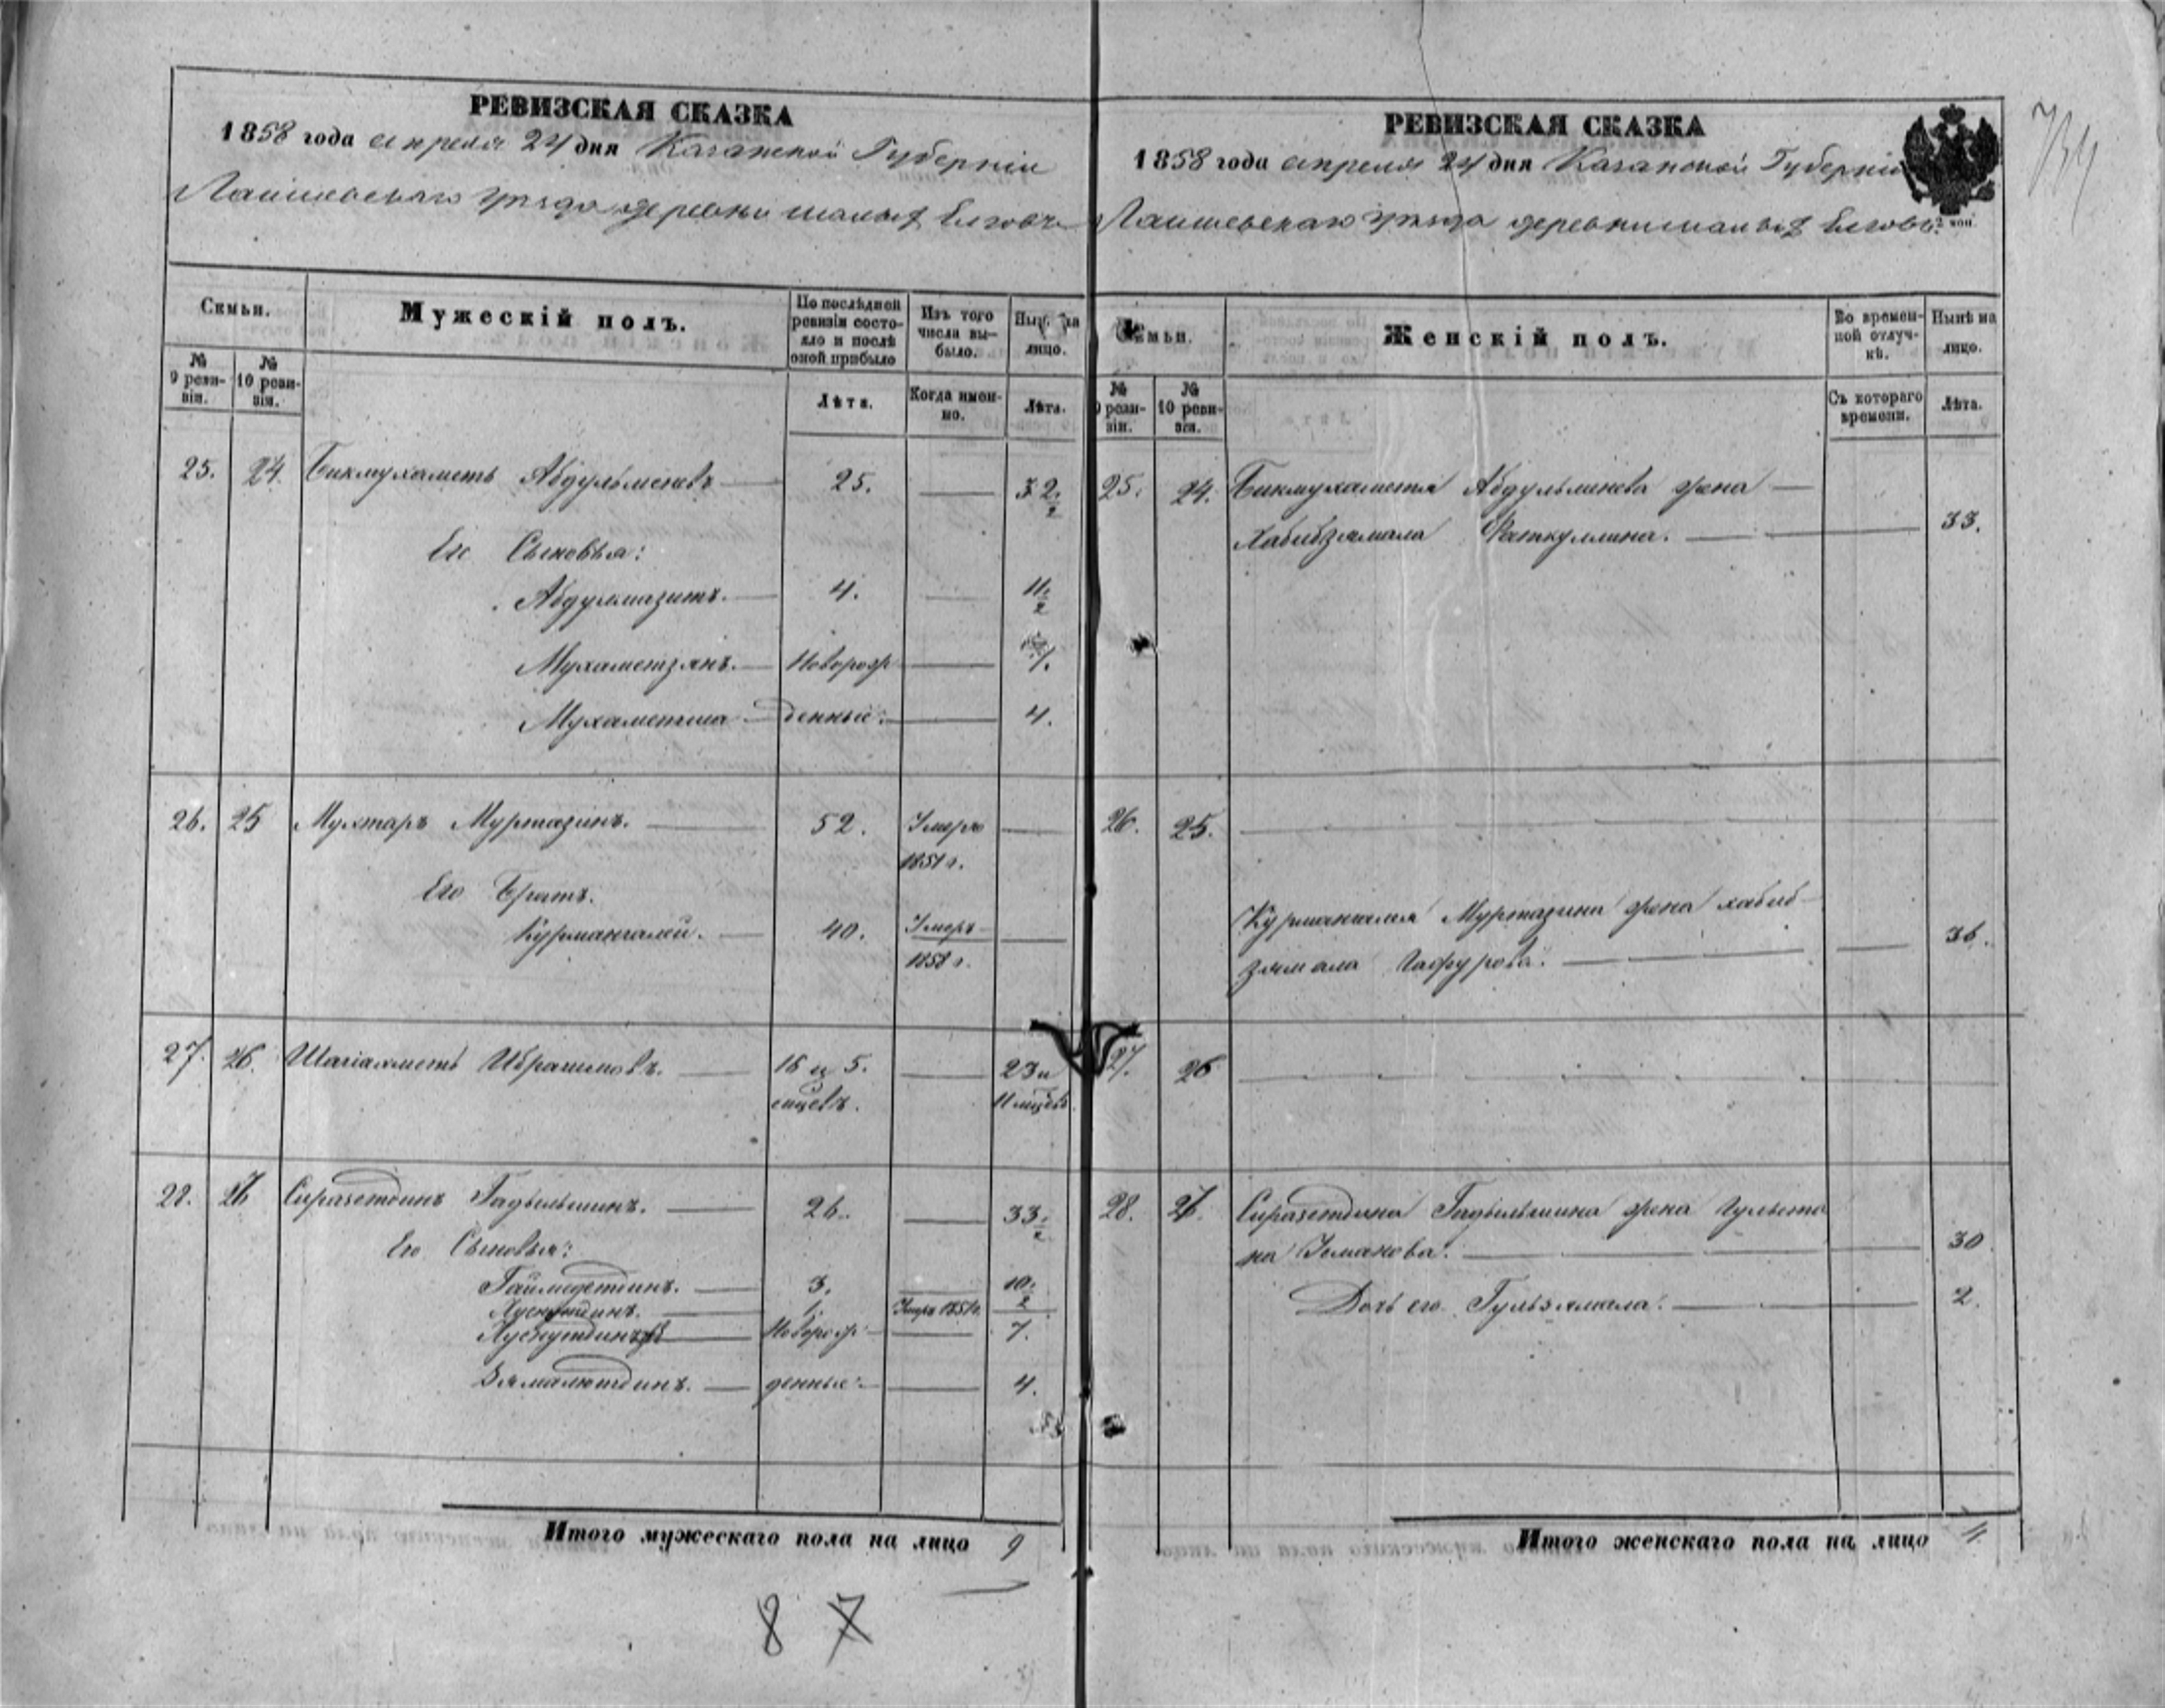 РЕВИЗСКАЯ СКАЗКА
1858 года апреля 24 дня Казанской Губернии
Лаишевскаго уезда деревни малых Елгов
Семьи.
Мужескій полъ.
По послѣдней ревизіи состояло и послѣ оной прибыло
Изъ того числа выбыло.
Нынѣ на лицо.
№ 9 ревизіи.
№ 10 ревизіи.
Лѣта.
Когда именно.
Лѣта.
25. 24. Бикмухаметъ Абдульменевъ 25. 32 1/2
Его Сыновья:
Абдулмазитъ. 4. 11 1/2
Мухаметзянъ. Новорож 7.
Мухаметша денные. 4.
26. 25 Мухтаръ Муртазинъ. 52. Умеръ
1851 г.
Его Братъ.
Курмангалей. 40. Умеръ
1858 г.
27. 26. Шагіахметъ Ибрагимовъ. 16 и 5. 23 и
11 мцовъ
28. 27 Сиразетдинъ Гадыльшинъ. 26. 33 1/2
Его Сыновья:
Гаймедетдинъ. 3. 10 1/2
Хуснутдинъ. 1. Умеръ 1851 г.
Хуснутдинъ Новорож 7.
Зямалютдинъ. денные. 4.
Итого мужескаго пола на лицо 9
8 7
РЕВИЗСКАЯ СКАЗКА
1858 года апреля 24 дня Казанской Губерніи
Лаишевскаго уезда деревни малых Елгов
2 коп.
734
Семьи.
Женскій полъ.
Во временной отлучкѣ.
Нынѣ на лицо.
№ 9 ревизіи.
№ 10 ревизіи.
Съ котораго времени.
Лѣта.
25. 24. Бикмухаметя Абдульменева жена
Хабибзямала Фаткуллина. 33.
26. 25.
Курмангалея Муртазина жена хабиб
зямала Гафурова. 36.
27. 26
28. 27. Сиразетдина Гадыльшина жена Гульста
на Усманова. 30
Дочь его Гульзямала. 2.
Итого женскаго пола на лицо 4